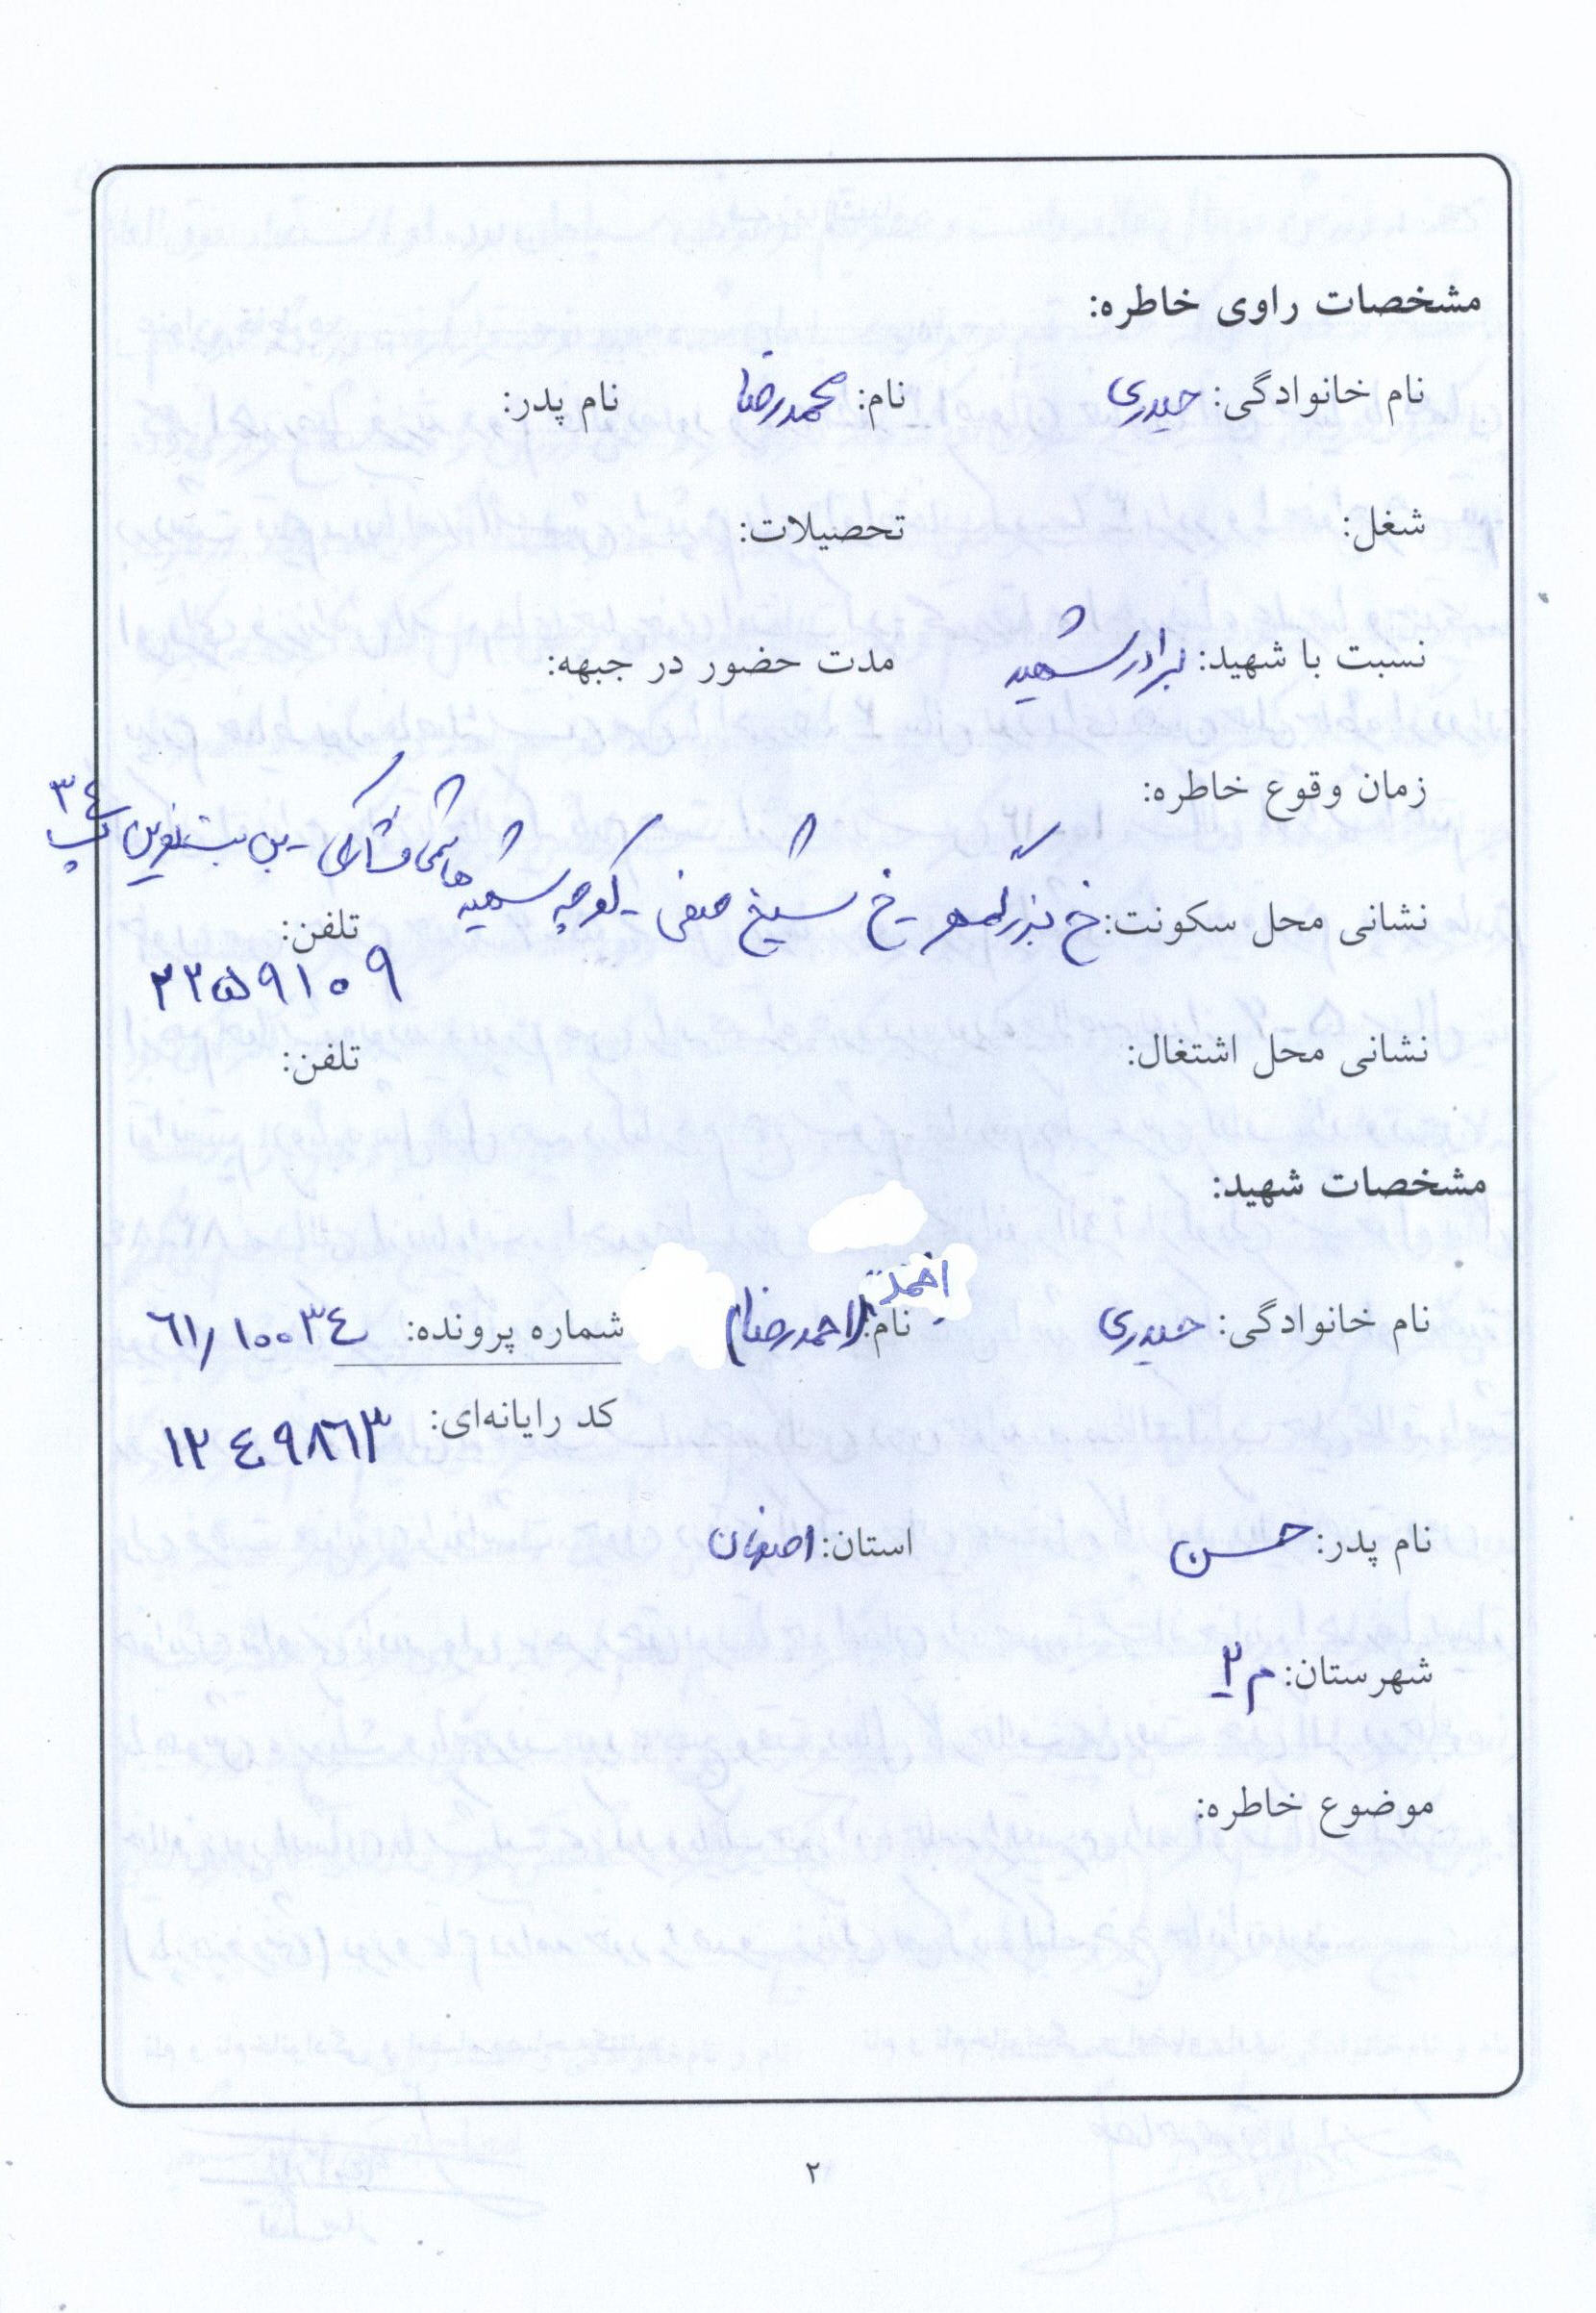 مشخصات راوی خاطره:
نام خانوادگی: حیدری نام: محمدرضا نام پدر:
شغل: تحصیلات:
نسبت با شهید: برادر شهید مدت حضور در جبهه:
زمان وقوع خاطره:
نشانی محل سکونت: خ بزرگمهر - خ شیخ صفی - کوچه شهید هاشمی فشارکی - بن بست نوین پ ٣٤ تلفن:
۲۲۵۹۱۰۹
نشانی محل اشتغال: تلفن:
مشخصات شهید:
احمد
نام خانوادگی: حیدری نام: (احمدرضا) شماره پرونده: ٦١/١٠٠٣٤
کد رایانه‌ای: ١٢٤٩٨٦٣
نام پدر: حسن استان: اصفهان
شهرستان: م ٢
موضوع خاطره:
٢